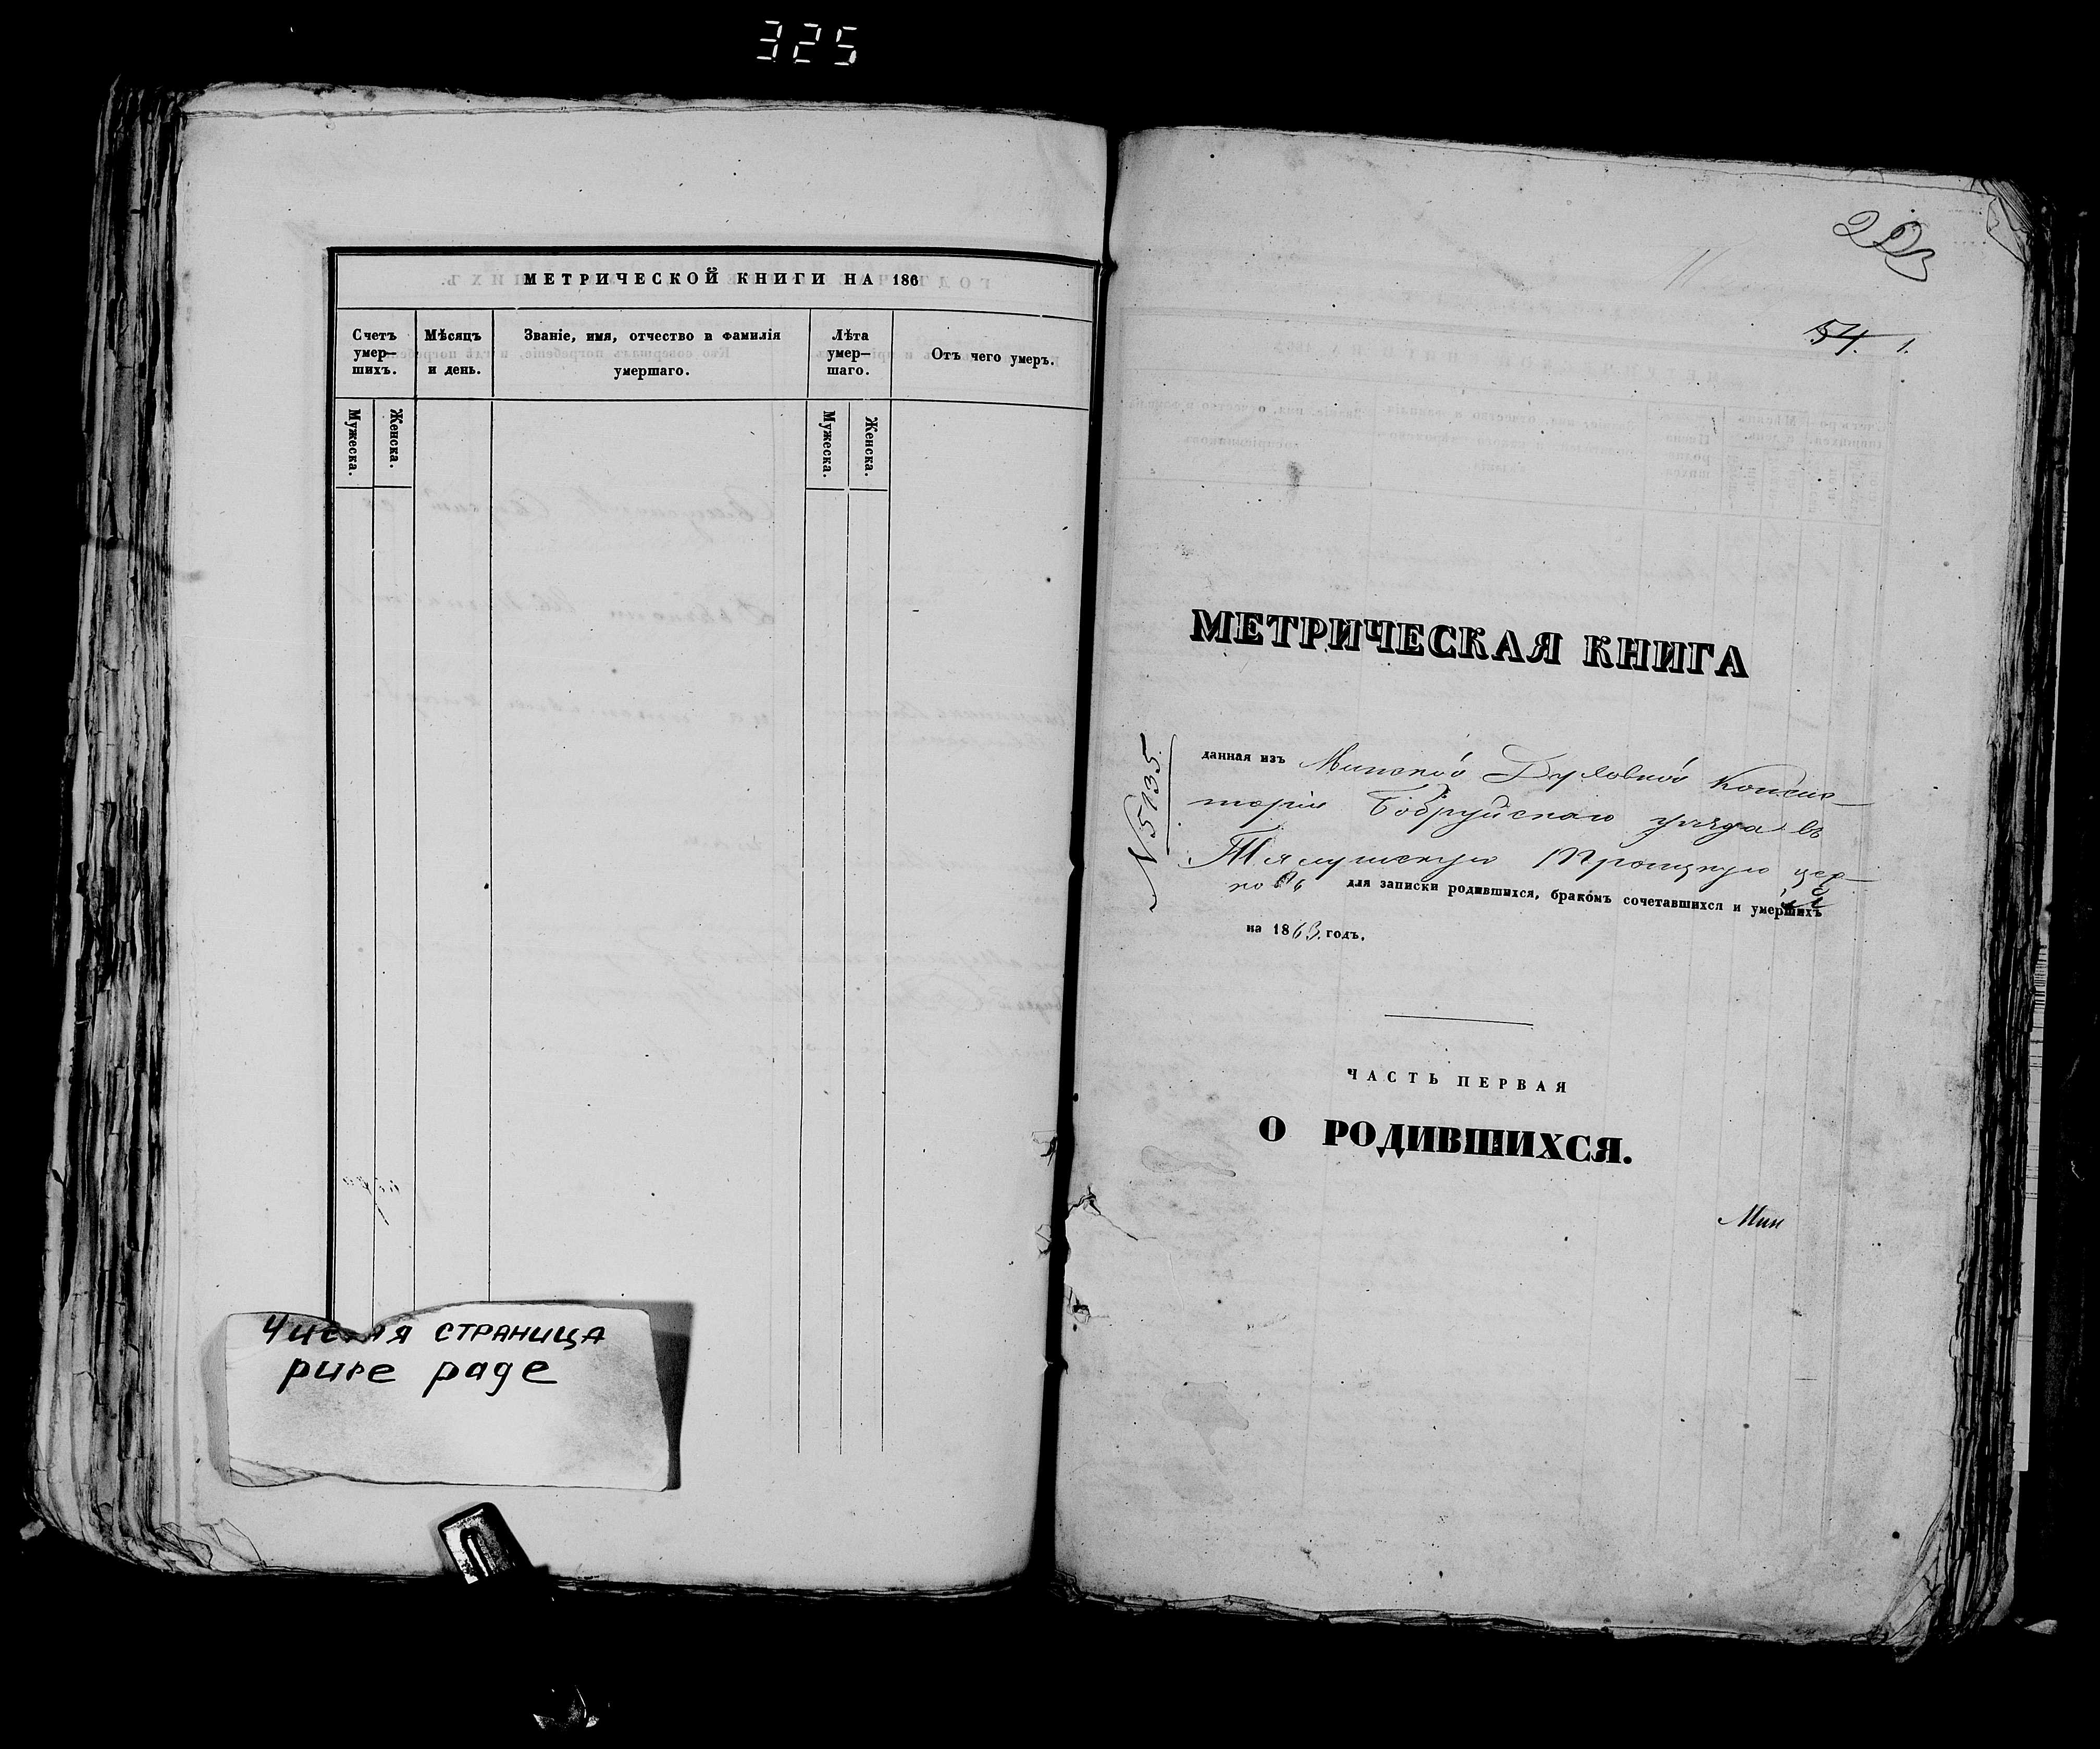 325
МЕТРИЧЕСКОЙ КНИГИ НА 186
Счетъ умер—шихъ.
Мѣсяцъ и день.
Званіе, имя, отчество и фамилія умершаго.
Лѣта умер—шаго.
Отъ чего умеръ.
Мужеска.
Женска.
Мужеска.
Женска.
Чистая страница
pure page
54. 1.
МЕТРИЧЕСКАЯ КНИГА
№ 5135
данная изъ Минской Духовной Консис—
торіи Бобруйскаго уѣзда въ
Троицкую цер—
ковь для записки родившихся, бракомъ сочетавшихся и умершихъ
на 1863 годъ.
ЧАСТЬ ПЕРВАЯ
О РОДИВШИХСЯ.
Мин